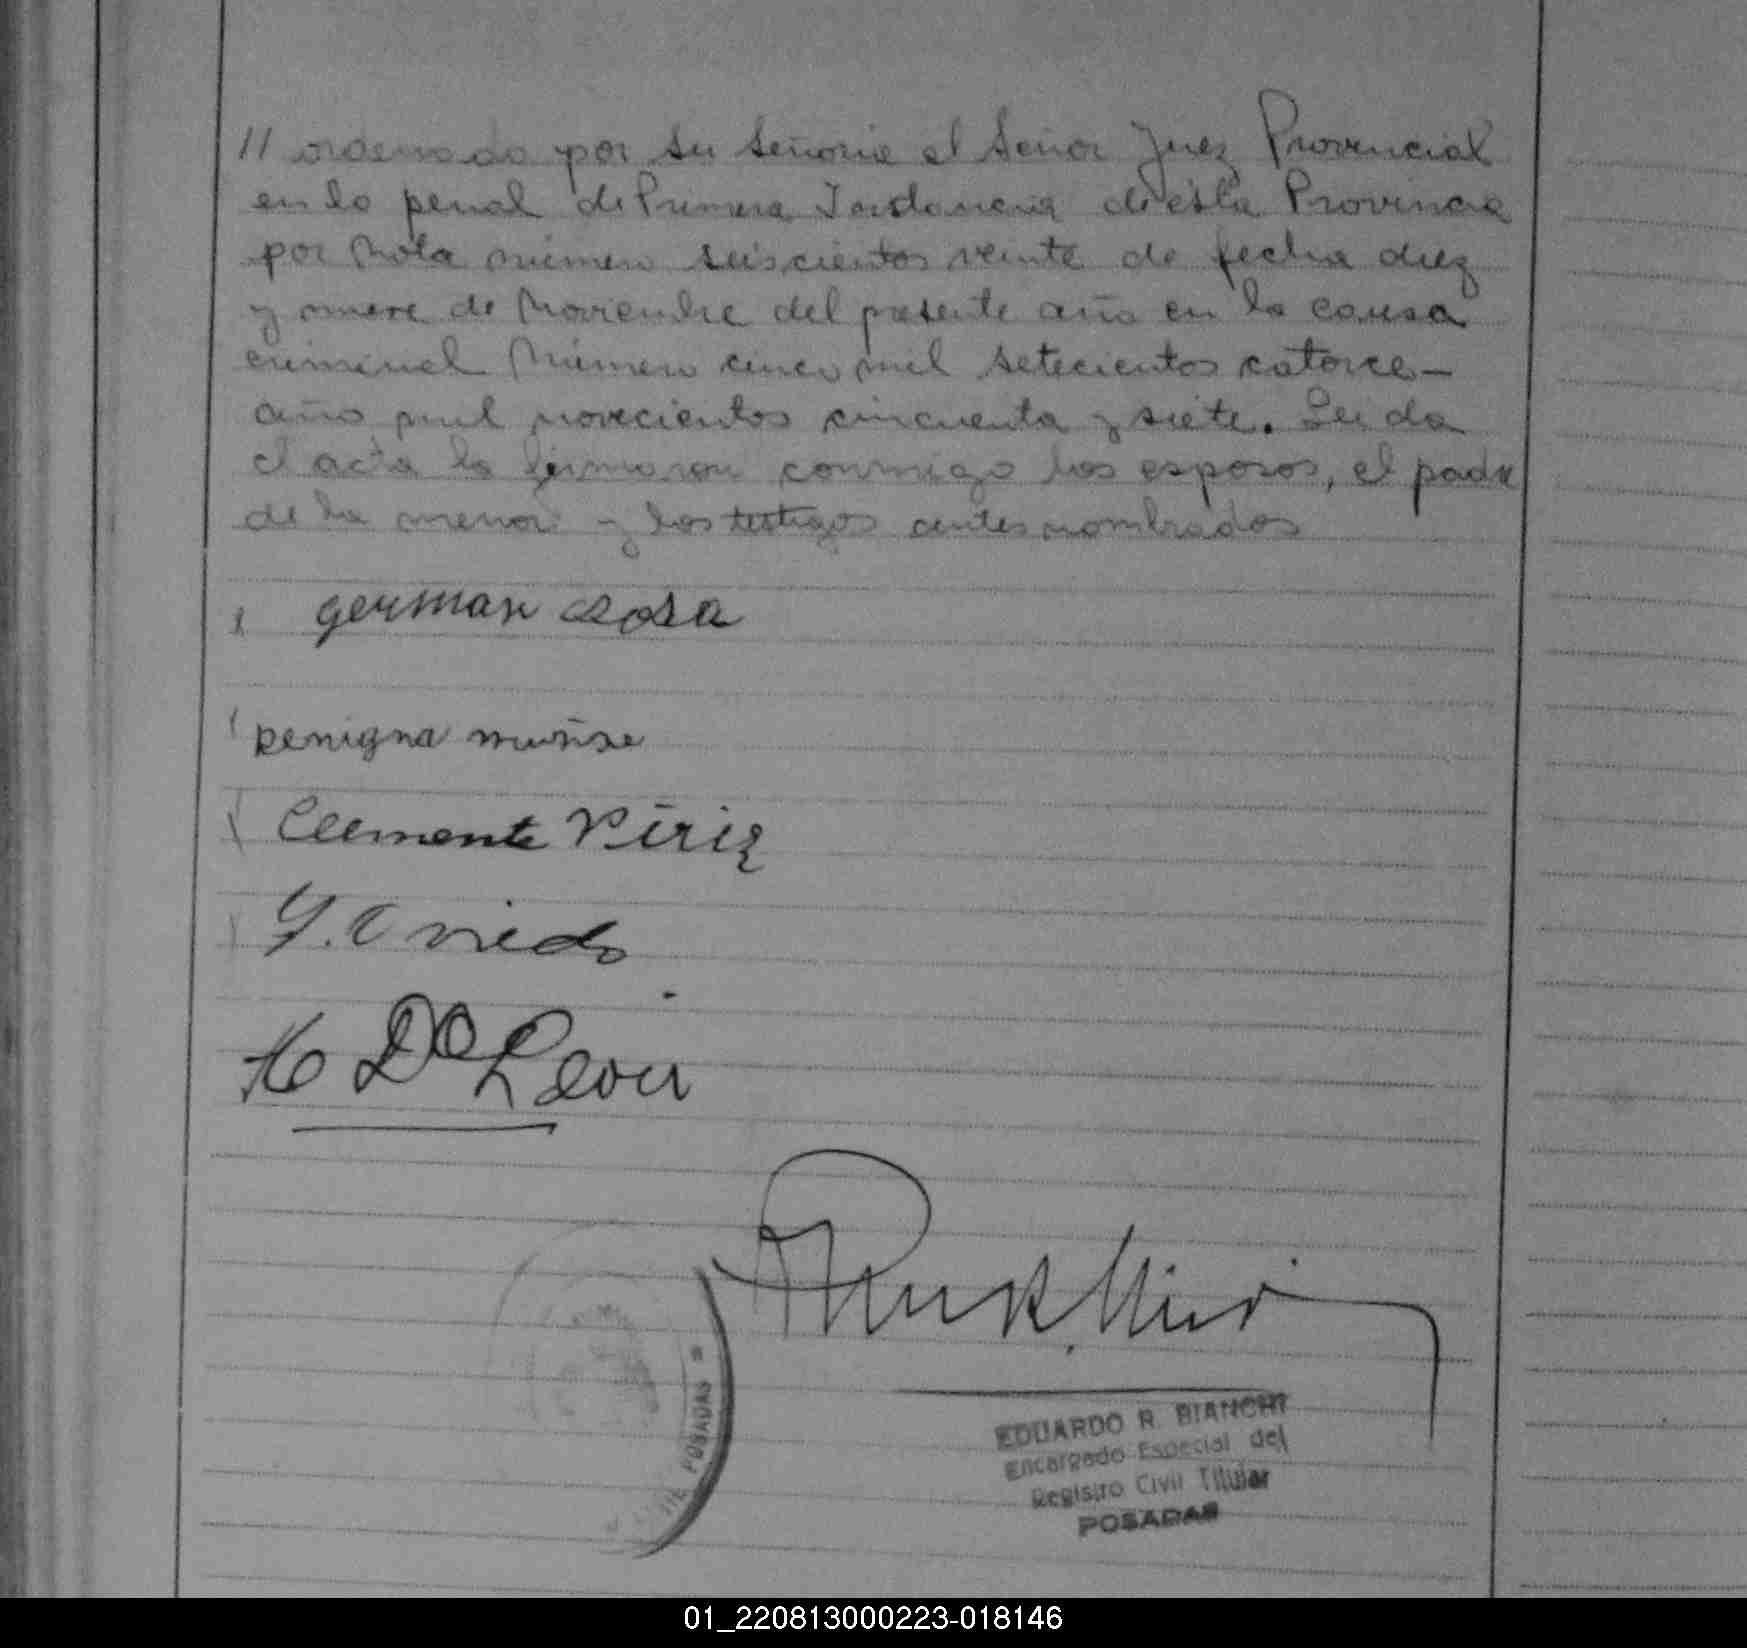 // ordenado por su Señoria el Señor Juez Provincial
en lo penal de Primera Instancia de esta Provincia
por Nota número seiscientos veinte de fecha diez
y nueve de Noviembre del presente año en la causa
criminal Número cinco mil setecientos catorce-
año mil novecientos cincuenta y siete. Leida
el acta la firmaron conmigo los esposos, el padre
de la menor y los testigos antes nombrados
german sosa
benigna
Clemente Píriz
G. Oviedo
De León
POSADAS
EDUARDO R. BIANCHI
Encargado Especial del
Registro Civil Titular
POSADAS
01_220813000223-018146